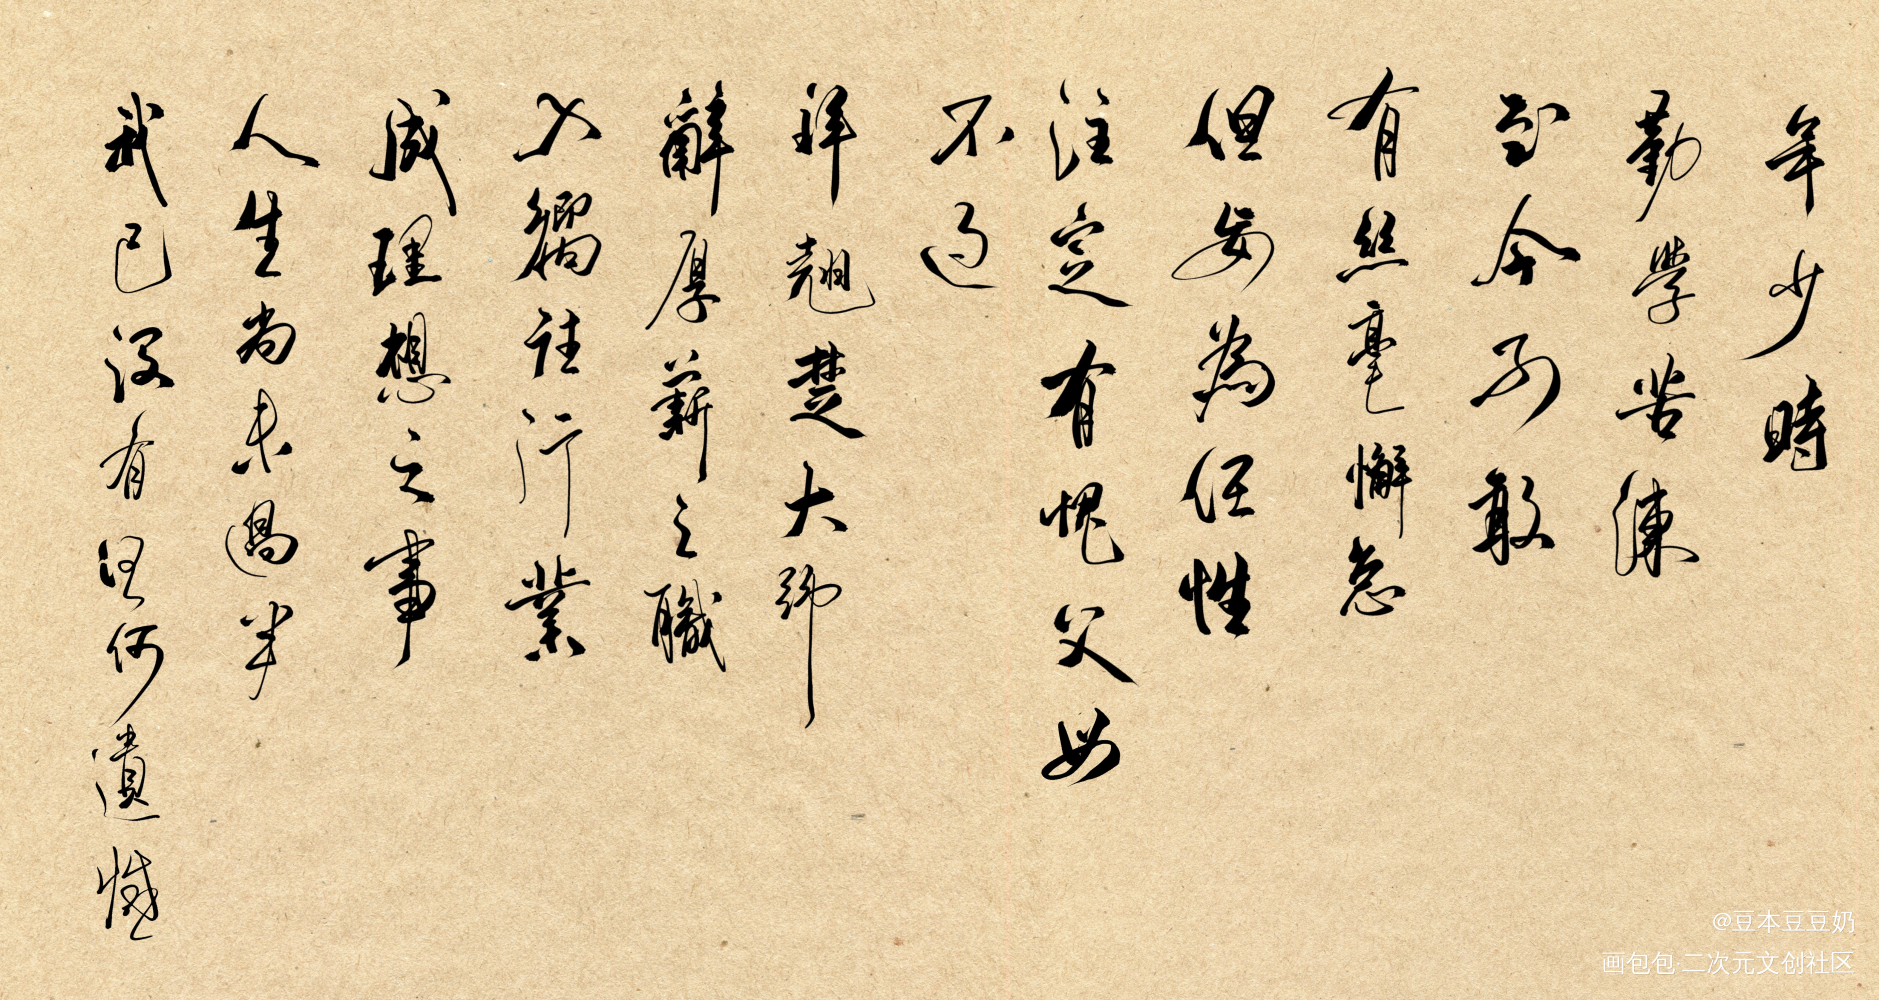 年少時
勤學苦練
至今不敢
有絲毫懈怠
但妄為任性
注定有愧父母
不過
拜翹楚大師
辭厚薪之職
入行業
成理想之事
人生尚未過半
我已沒有任何遺憾
@豆本豆豆奶
画包包·二次元文创社区